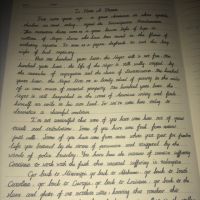 I Have A Dream
Five score years ago, a great American, in whose symbolic
shadow we stand today, signed the Emancipation Proclamation.
This momentous decree came as a great beacon light of hope to
millions of Negro slaves who had been seared in the flames of
withering injustice. It came as a joyous daybreak to end the long
night of bad captivity.
But one hundred years later, the Negro still is not free. One
hundred years later, the life of the Negro is still sadly crippled by
the manacles of segregation and the chains of discrimination. One hundred
years later, the Negro lives on a lonely island of poverty in the midst
of a vast ocean of material prosperity. One hundred years later, the
Negro is still languished in the corners of American society and finds
himself an exile in his own land. So we've come here today to
dramatize a shameful condition.
I am not unmindful that some of you have come here out of great
trials and tribulations. Some of you have come fresh from narrow
jail cells. Some of you have come from areas where your quest for freedom
left you battered by the storms of persecution and staggered by the
winds of police brutality. You have been the veterans of creative suffering.
Continue to work with the faith that unearned suffering is redemptive.
Go back to Mississippi, go back to Alabama, go back to South
Carolina, go back to Georgia, go back to Louisiana, go back to the
slums and ghettos of our northern cities, knowing that somehow this